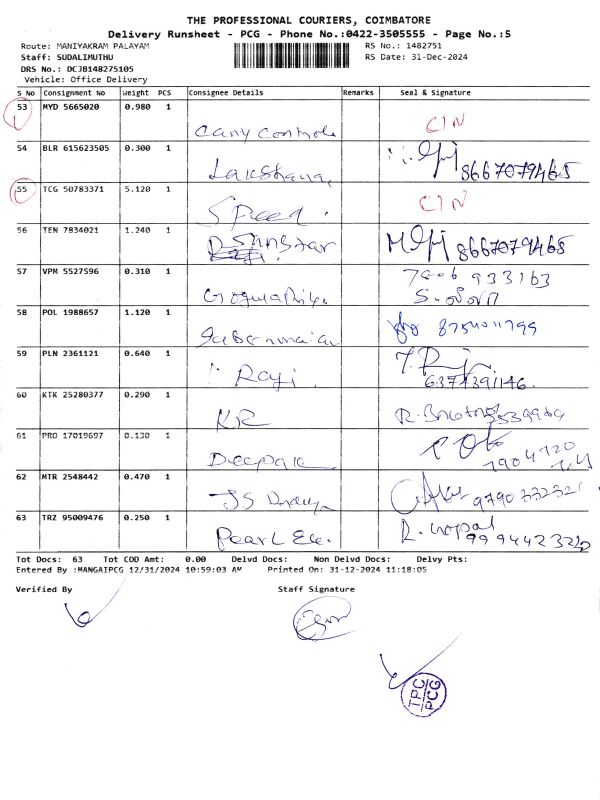 THE PROFESSIONAL COURIERS, COIMBATORE
Delivery Runsheet - PCG - Phone No.:0422-3505555 - Page No.:5
Route: MANIYAKRAM PALAYAM RS No.: 1482751
Staff: SUDALIMUTHU RS Date: 31-Dec-2024
DRS No.: DCJB148275105
Vehicle: Office Delivery
S No Consignment No Weight PCS Consignee Details Remarks Seal & Signature
53 MYD 5665020 0.980 1 CIN
54 BLR 615623505 0.300 1 Lakshana 8667079465
55 TCG 50783371 5.120 1 Speed CIN
56 TEN 7834021 1.240 1 Sunstar 8667079465
57 VPM 5527596 0.310 1 7006 933163
58 POL 1988657 1.120 1
59 PLN 2361121 0.640 1
60 KTK 25280377 0.290 1 KR
61 PRO 17019697 0.130 1 Deepak 7904720
62 MTR 2548442 0.470 1 JS 9790332321
63 TRZ 95009476 0.250 1 Pearl R. Gopal
Tot Docs: 63 Tot COD Amt: 0.00 Delvd Docs: Non Delvd Docs: Delvy Pts:
Entered By :MANGAIPCG 12/31/2024 10:59:03 AM Printed On: 31-12-2024 11:18:05
Verified By Staff Signature
TPC
PCG